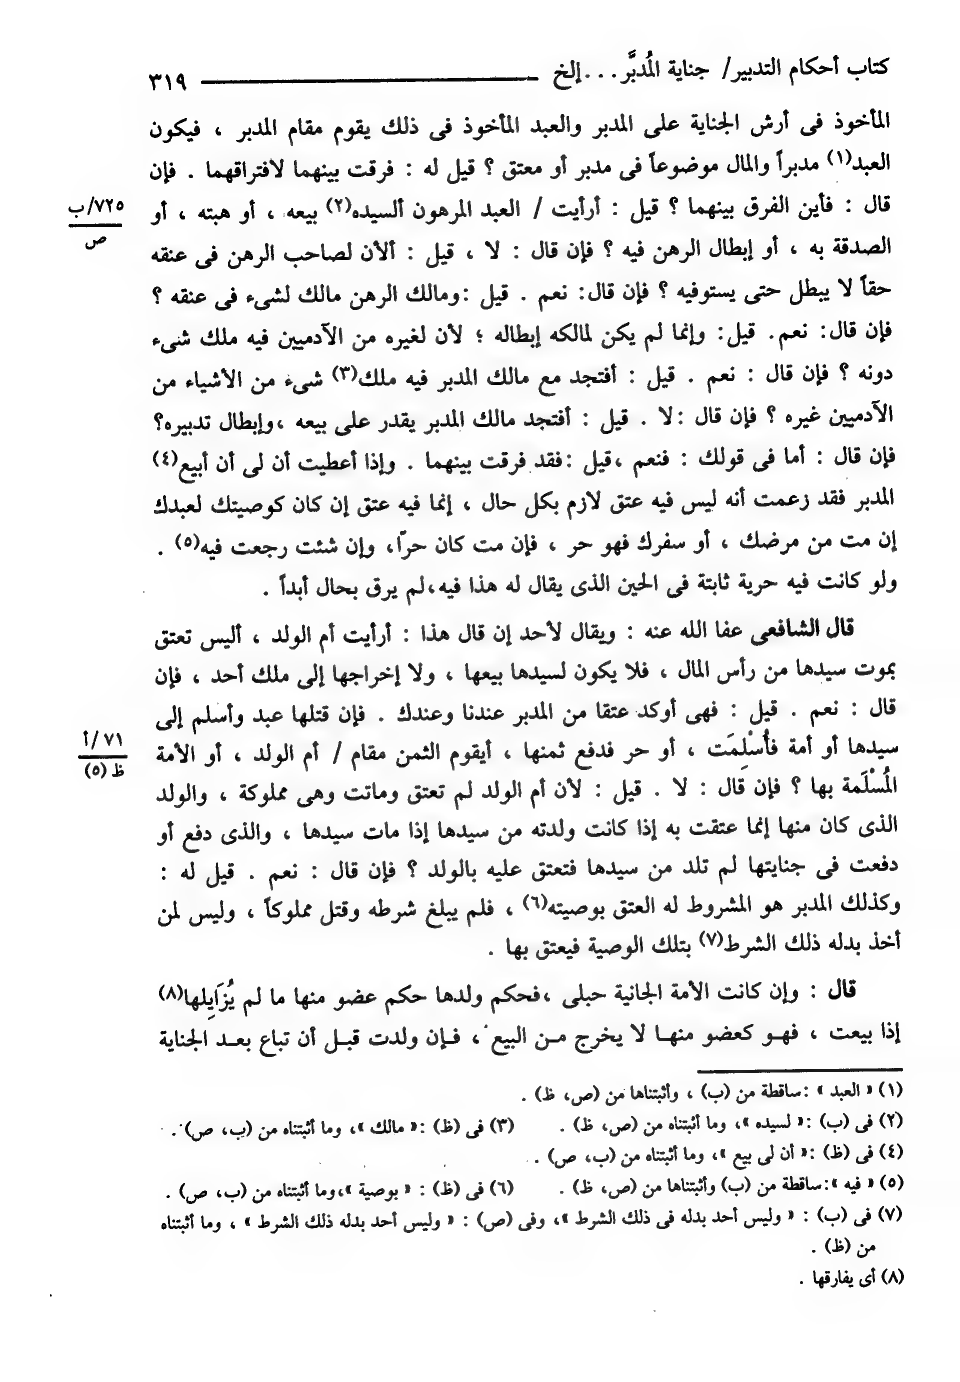 كتاب أحكام التدبير/ جناية المُدبَّر . . . إلخ ٣١٩
المأخوذ فى أرش الجناية على المدبر والعبد المأخوذ فى ذلك يقوم مقام المدبر ، فيكون
العبد(١) مدبراً والمال موضوعاً فى مدبر أو معتق ؟ قيل له : فرقت بينهما لافتراقهما . فإن
قال : فأين الفرق بينهما ؟ قيل : أرأيت / العبد المرهون ألسيده(٢) بيعه ، أو هبته ، أو
٧٢٥/ب
ص
الصدقة به ، أو إبطال الرهن فيه ؟ فإن قال : لا ، قيل : ألأن لصاحب الرهن فى عنقه
حقاً لا يبطل حتى يستوفيه ؟ فإن قال: نعم . قيل :ومالك الرهن مالك لشىء فى عنقه ؟
فإن قال: نعم. قيل: وإنما لم يكن لمالكه إبطاله ؛ لأن لغيره من الآدميين فيه ملك شىء
دونه ؟ فإن قال : نعم . قيل : أفتجد مع مالك المدبر فيه ملك(٣) شىء من الأشياء من
الآدميين غيره ؟ فإن قال :لا . قيل : أفتجد مالك المدبر يقدر على بيعه ،وإبطال تدبيره؟
فإن قال : أما فى قولك : فنعم ،قيل :فقد فرقت بينهما . وإذا أعطيت أن لى أن أبيع(٤)
المدبر فقد زعمت أنه ليس فيه عتق لازم بكل حال ، إنما فيه عتق إن كان كوصيتك لعبدك
إن مت من مرضك ، أو سفرك فهو حر ، فإن مت كان حرّا، وإن شئت رجعت فيه(٥) .
ولو كانت فيه حرية ثابتة فى الحين الذى يقال له هذا فيه،لم يرق بحال أبداً .
قال الشافعى عفا الله عنه : ويقال لأحد إن قال هذا : أرأيت أم الولد ، أليس تعتق
بموت سيدها من رأس المال ، فلا يكون لسيدها بيعها ، ولا إخراجها إلى ملك أحد ، فإن
قال : نعم . قيل : فهى أوكد عتقا من المدبر عندنا وعندك . فإن قتلها عبد وأسلم إلى
سيدها أو أمة فأُسْلِمَت ، أو حر فدفع ثمنها ، أيقوم الثمن مقام / أم الولد ، أو الأمة
٧١/أ
ظ (٥)
المُسْلَمة بها ؟ فإن قال : لا . قيل : لأن أم الولد لم تعتق وماتت وهى مملوكة ، والولد
الذى كان منها إنما عتقت به إذا كانت ولدته من سيدها إذا مات سيدها ، والذى دفع أو
دفعت فى جنايتها لم تلد من سيدها فتعتق عليه بالولد ؟ فإن قال : نعم . قيل له :
وكذلك المدبر هو المشروط له العتق بوصيته(٦) ، فلم يبلغ شرطه وقتل مملوكاً ، وليس لمن
أخذ بدله ذلك الشرط(٧) بتلك الوصية فيعتق بها .
قال : وإن كانت الأمة الجانية حبلى ،فحكم ولدها حكم عضو منها ما لم يُزَايِلها(٨)
إذا بيعت ، فهـو كعضو منهـا لا يخرج مـن البيع ، فـإن ولدت قبـل أن تباع بعـد الجناية
(١) « العبد » :ساقطة من (ب) ، وأثبتناها من (ص، ظ) .
(٢) فى (ب) :« لسيده »، وما أثبتناه من (ص، ظ) . (٣) فى (ظ) :« مالك »، وما أثبتناه من (ب، ص) .
(٤) فى (ظ) :« أن لى بيع »، وما أثبتناه من (ب، ص) .
(٥) « فيه »:ساقطة من (ب) وأثبتناها من (ص، ظ) . (٦) فى (ظ) : « بوصية »،وما أثبتناه من (ب، ص) .
(٧) فى (ب) : « وليس أحد بدله فى ذلك الشرط »، وفى (ص) : « وليس أحد بدله ذلك الشرط » ، وما أثبتناه
من (ظ) .
(٨) أى يفارقها .